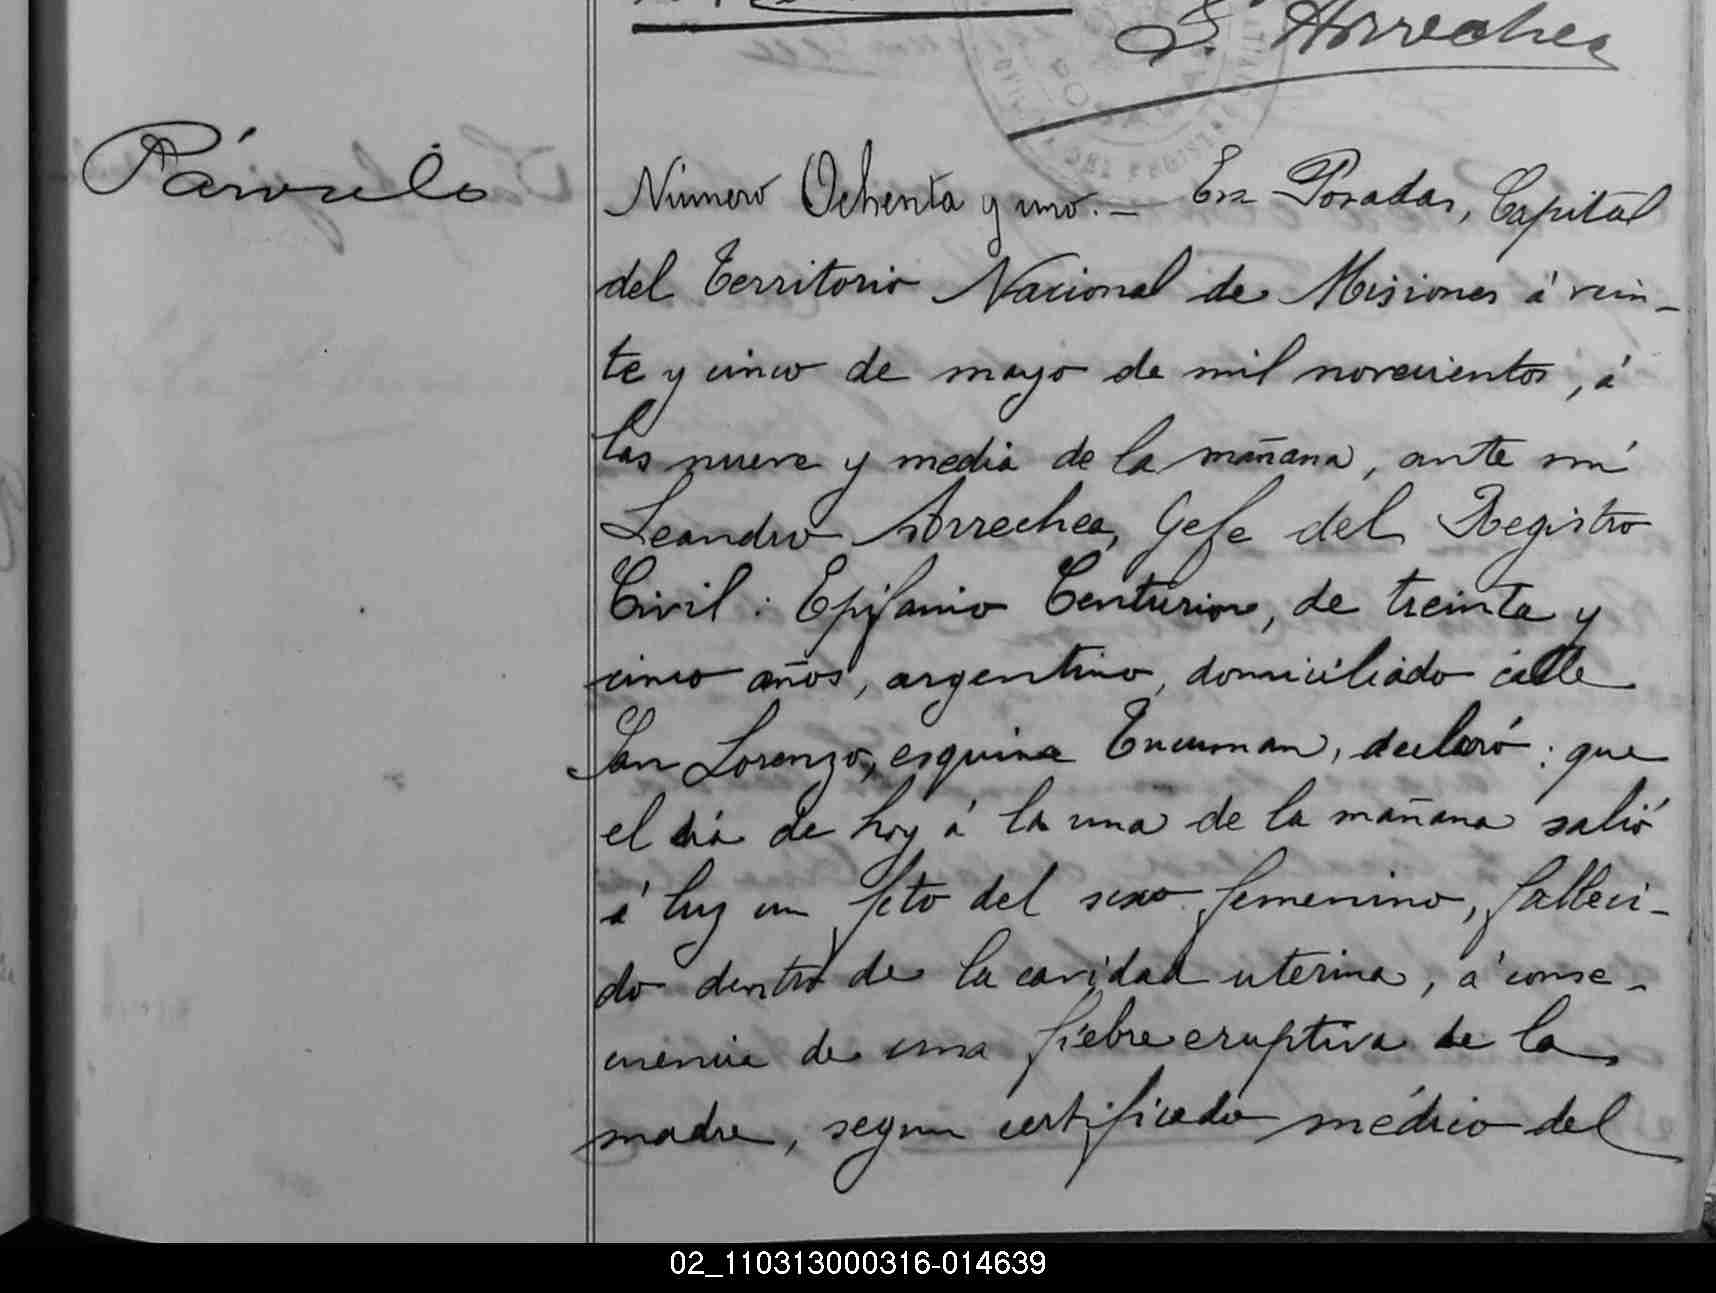 L. Arrechea
Párvulo
Número Ochenta y uno.- En Posadas, Capital
del Territorio Nacional de Misiones á vein-
te y cinco de mayo de mil novecientos, á
las nueve y media de la mañana, ante mí
Leandro Arrechea, Gefe del Registro
Civil: Epifanio Centurion, de treinta y
cinco años, argentino, domiciliado calle
San Lorenzo, esquina Tucuman, declaró: que
el dia de hoy á la una de la mañana salió
á luz un feto del sexo femenino, falleci-
do dentro de la cavidad uterina, á conse-
cuencia de una fiebre eruptiva de la
madre, segun certificado médico del
02_110313000316-014639